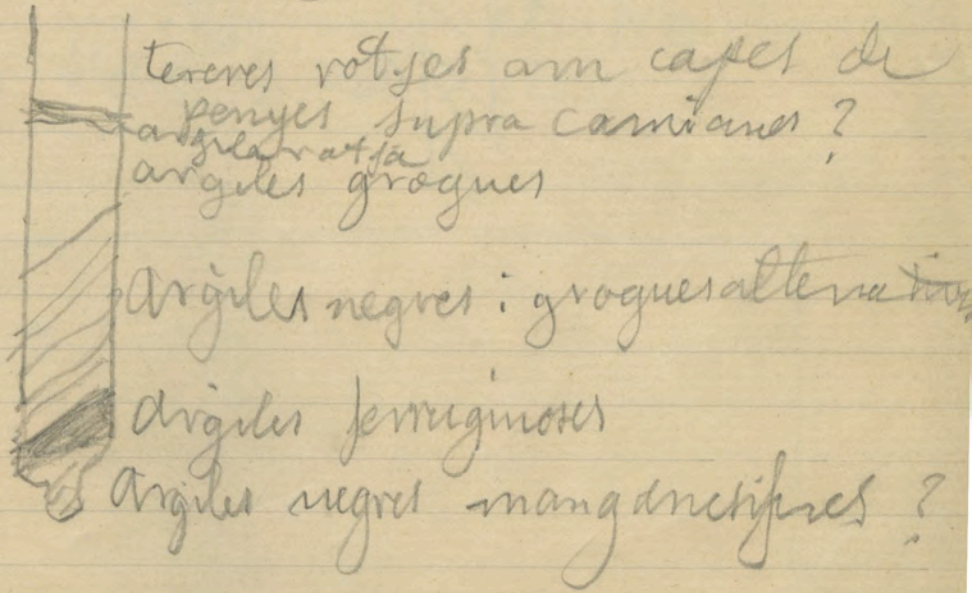 tereres rotjes am capes de
penyes supra
argila rotja
argiles grogues
Argiles negres i grogues
Argiles ferruginoses
Argiles negres manganesiferes ?